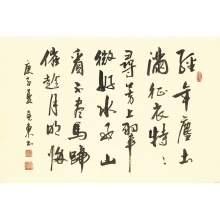 經年塵土
滿征衣特々
尋芳上翠
微好水好山
看不盡馬蹄
催趁月明歸
庚子夏東書